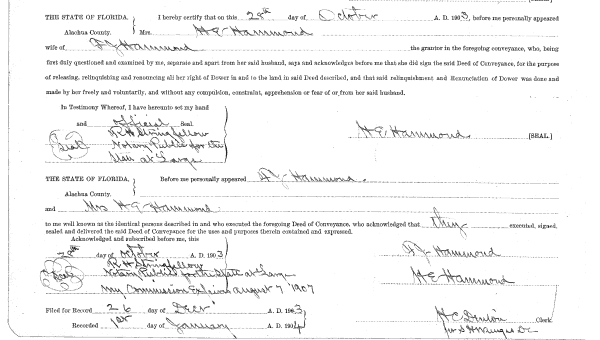 THE STATE OF FLORIDA, I hereby certify that on this 28th day of October A. D. 1903, before me personally appeared
Alachua County. Mrs. H E Hammond
wife of F J Hammond the grantor in the foregoing conveyance, who, being
first duly questioned and examined by me, separate and apart from her said husband, says and acknowledges before me that she did sign the said Deed of Conveyance, for the purpose
of releasing, relinquishing and renouncing all her right of Dower in and to the land in said Deed described, and that said relinquishment and Renunciation of Dower was done and
made by her freely and voluntarily, and without any compulsion, constraint, apprehension or fear of or from her said husband.
In Testimony Whereof, I have hereunto set my hand
and official Seal.
R H Stringfellow H E. Hammond [SEAL.]
(Seal) Notary Public for the
State at Large
THE STATE OF FLORIDA, Before me personally appeared F J Hammond.
Alachua County.
and Mrs H E Hammond
to me well known as the identical persons described in and who executed the foregoing Deed of Conveyance, who acknowledged that they executed, signed,
sealed and delivered the said Deed of Conveyance for the uses and purposes therein contained and expressed.
Acknowledged and subscribed before me, this
28th day of October A. D. 1903 F J Hammond
R H Stringfellow
(Seal) Notary Public for the State at Large H E Hammond
My Commission Expires August 7 1907
Filed for Record 26 day of Decr A. D. 1903 H C Denton Clerk.
Recorded 1st day of January A. D. 1904 D C